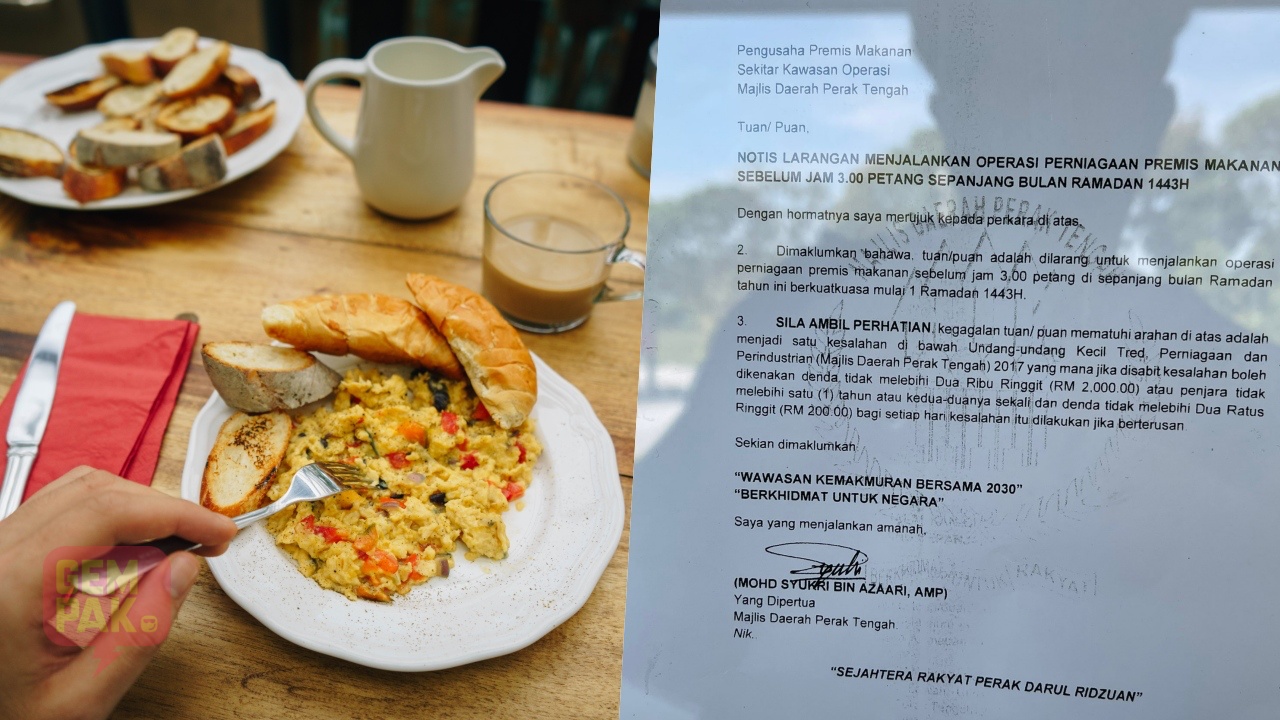 GEM
PAK
Pengusaha Premis Makanan
Sekitar Kawasan Operasi
Majlis Daerah Perak Tengah
Tuan/ Puan,
NOTIS LARANGAN MENJALANKAN OPERASI PERNIAGAAN PREMIS MAKANAN
SEBELUM JAM 3.00 PETANG SEPANJANG BULAN RAMADAN 1443H
Dengan hormatnya saya merujuk kepada perkara di atas.
2. Dimaklumkan bahawa, tuan/puan adalah dilarang untuk menjalankan operasi
perniagaan premis makanan sebelum jam 3.00 petang di sepanjang bulan Ramadan
tahun ini berkuatkuasa mulai 1 Ramadan 1443H.
3. SILA AMBIL PERHATIAN, kegagalan tuan/ puan mematuhi arahan di atas adalah
menjadi satu kesalahan di bawah Undang-undang Kecil Tred, Perniagaan dan
Perindustrian (Majlis Daerah Perak Tengah) 2017 yang mana jika disabit kesalahan boleh
dikenakan denda tidak melebihi Dua Ribu Ringgit (RM 2,000.00) atau penjara tidak
melebihi satu (1) tahun atau kedua-duanya sekali dan denda tidak melebihi Dua Ratus
Ringgit (RM 200.00) bagi setiap hari kesalahan itu dilakukan jika berterusan
Sekian dimaklumkan
“WAWASAN KEMAKMURAN BERSAMA 2030”
“BERKHIDMAT UNTUK NEGARA”
Saya yang menjalankan amanah,
(MOHD SYUKRI BIN AZAARI, AMP)
Yang Dipertua
Majlis Daerah Perak Tengah.
Nik.
“SEJAHTERA RAKYAT PERAK DARUL RIDZUAN”
MAJLIS DAERAH PERAK TENGAH